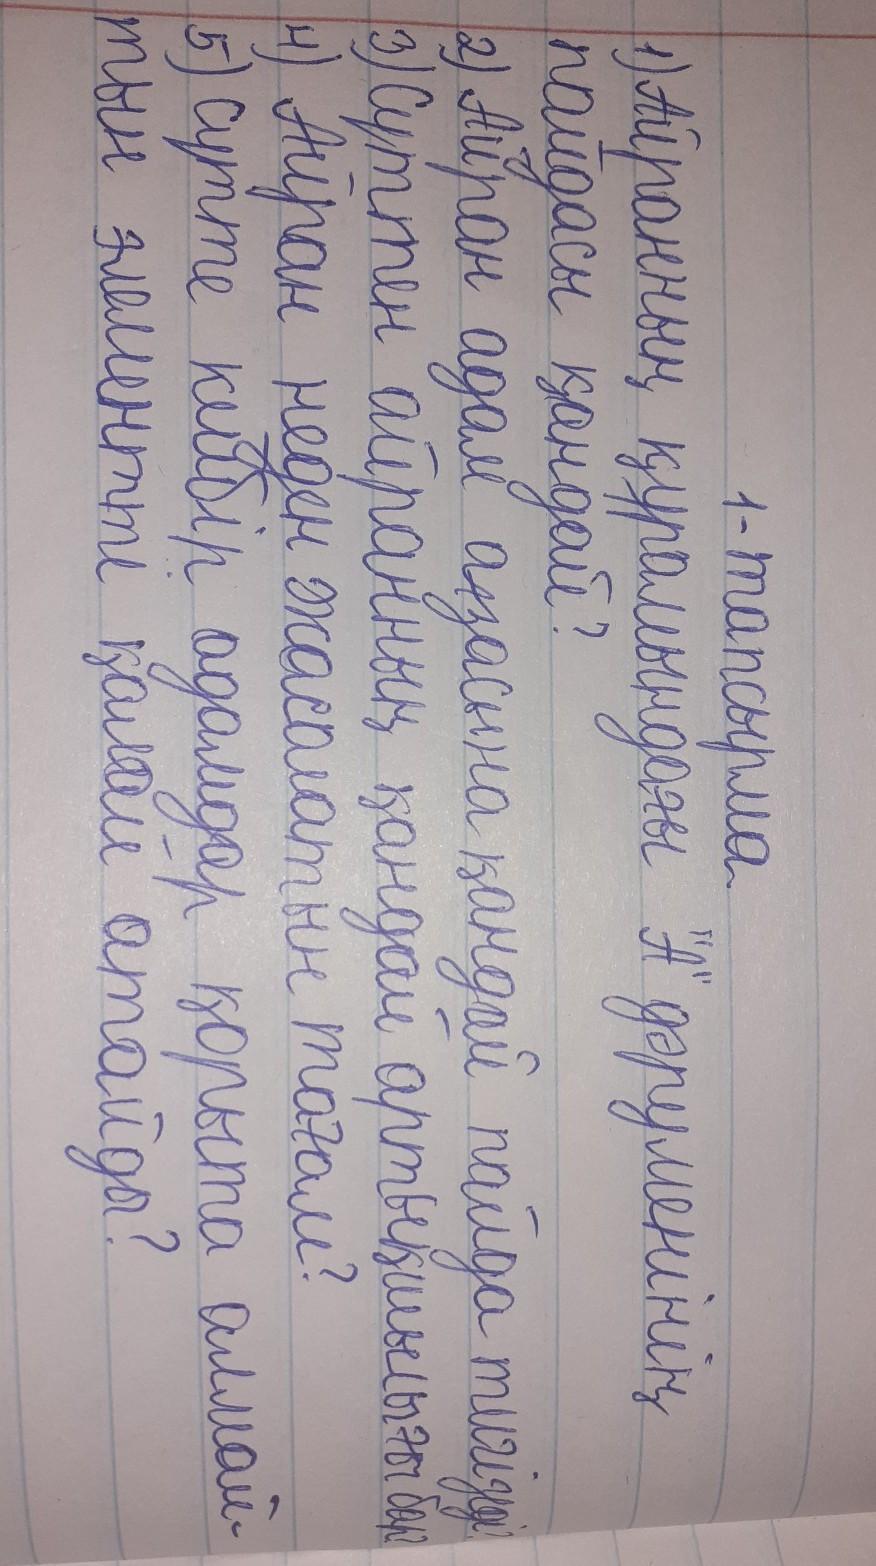 1-тапсырма
1) Айранның құрамындағы "А" дәруменінің
пайдасы қандай?
2) Айран адам ағзасына қандай пайда тигізеді
3) Сүттен айранның қандай артықшылығы бар
4) Айран неден жасалатын тағам?
5) Сүтте кейбір адамдар қорыта алмай-
тын элементті қалай атайды?